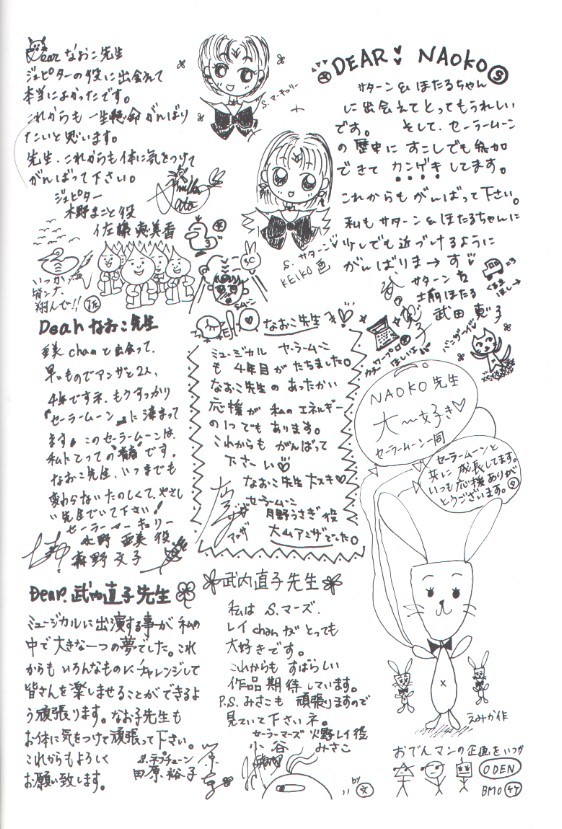 Dear なおこ先生
ジュピターの役に出会えて
本当によかったです。
これからも一生懸命がんばり
たいと思います。
先生、これからも体に気をつけて
がんばって下さい。
ジュピター
木野まこと役
佐藤恵美香
S.マーキュリー
S.サターン
KEIKO画
DEAR NAOKO
サターン&ほたるちゃん
に出会えてとってもうれしい
です。 そして、セーラームーン
の歴史にすこしでも参加
できて カンゲキしてます。
これからもがんばって下さい。
私もサターン&ほたるちゃんに
少しでも近づけるように
がんばりま→す
サターン&
土萠ほたる
武田恵子
いつか
Dear なおこ先生
亜美chanと出会って、
早いものでアンザと2人、
4年です
『セーラームーン』に
ます。このセーラームーンは
私にとっての です。
なおこ先生、いつまでも
変わらないたのしくて、やさし
い先生でいて下さい!
セーラーマーキュリー
水野亜美役
森野文子
なおこ先生
ミュージカル セーラームーン
も4年目がたちました。
なおこ先生のあったかい
応援が私のエネルギー
の1つでもあります。
これからも がんばって
下さーい
なおこ先生 大スキ
セーラームーン
月野うさぎ役
大山アンザでした
NAOKO先生
大〜好き
セーラームーン一同
セーラームーンと
共に成長してます。
いつも応援ありが
とうございます。
Dear. 武内直子先生
ミュージカルに出演する事が私の
中で大きな一つの夢でした。これ
からもいろんなものにチャレンジして
皆さんを楽しませることができるよ
う頑張ります。なお子先生も
お体に気をつけて頑張って下さい。
これからもよろしく
お願い致します。
S.ネプチューン
田原裕子
武内直子先生
私はS.マーズ、
レイchanがとっても
大好きです。
これからも すばらしい
作品期待しています。
P.S.みさこも 頑張りますので
見ていて下さいネ。
セーラーマーズ 火野レイ役
小谷みさこ
by
えみか作
おでんマンの企画をいつか
ODEN